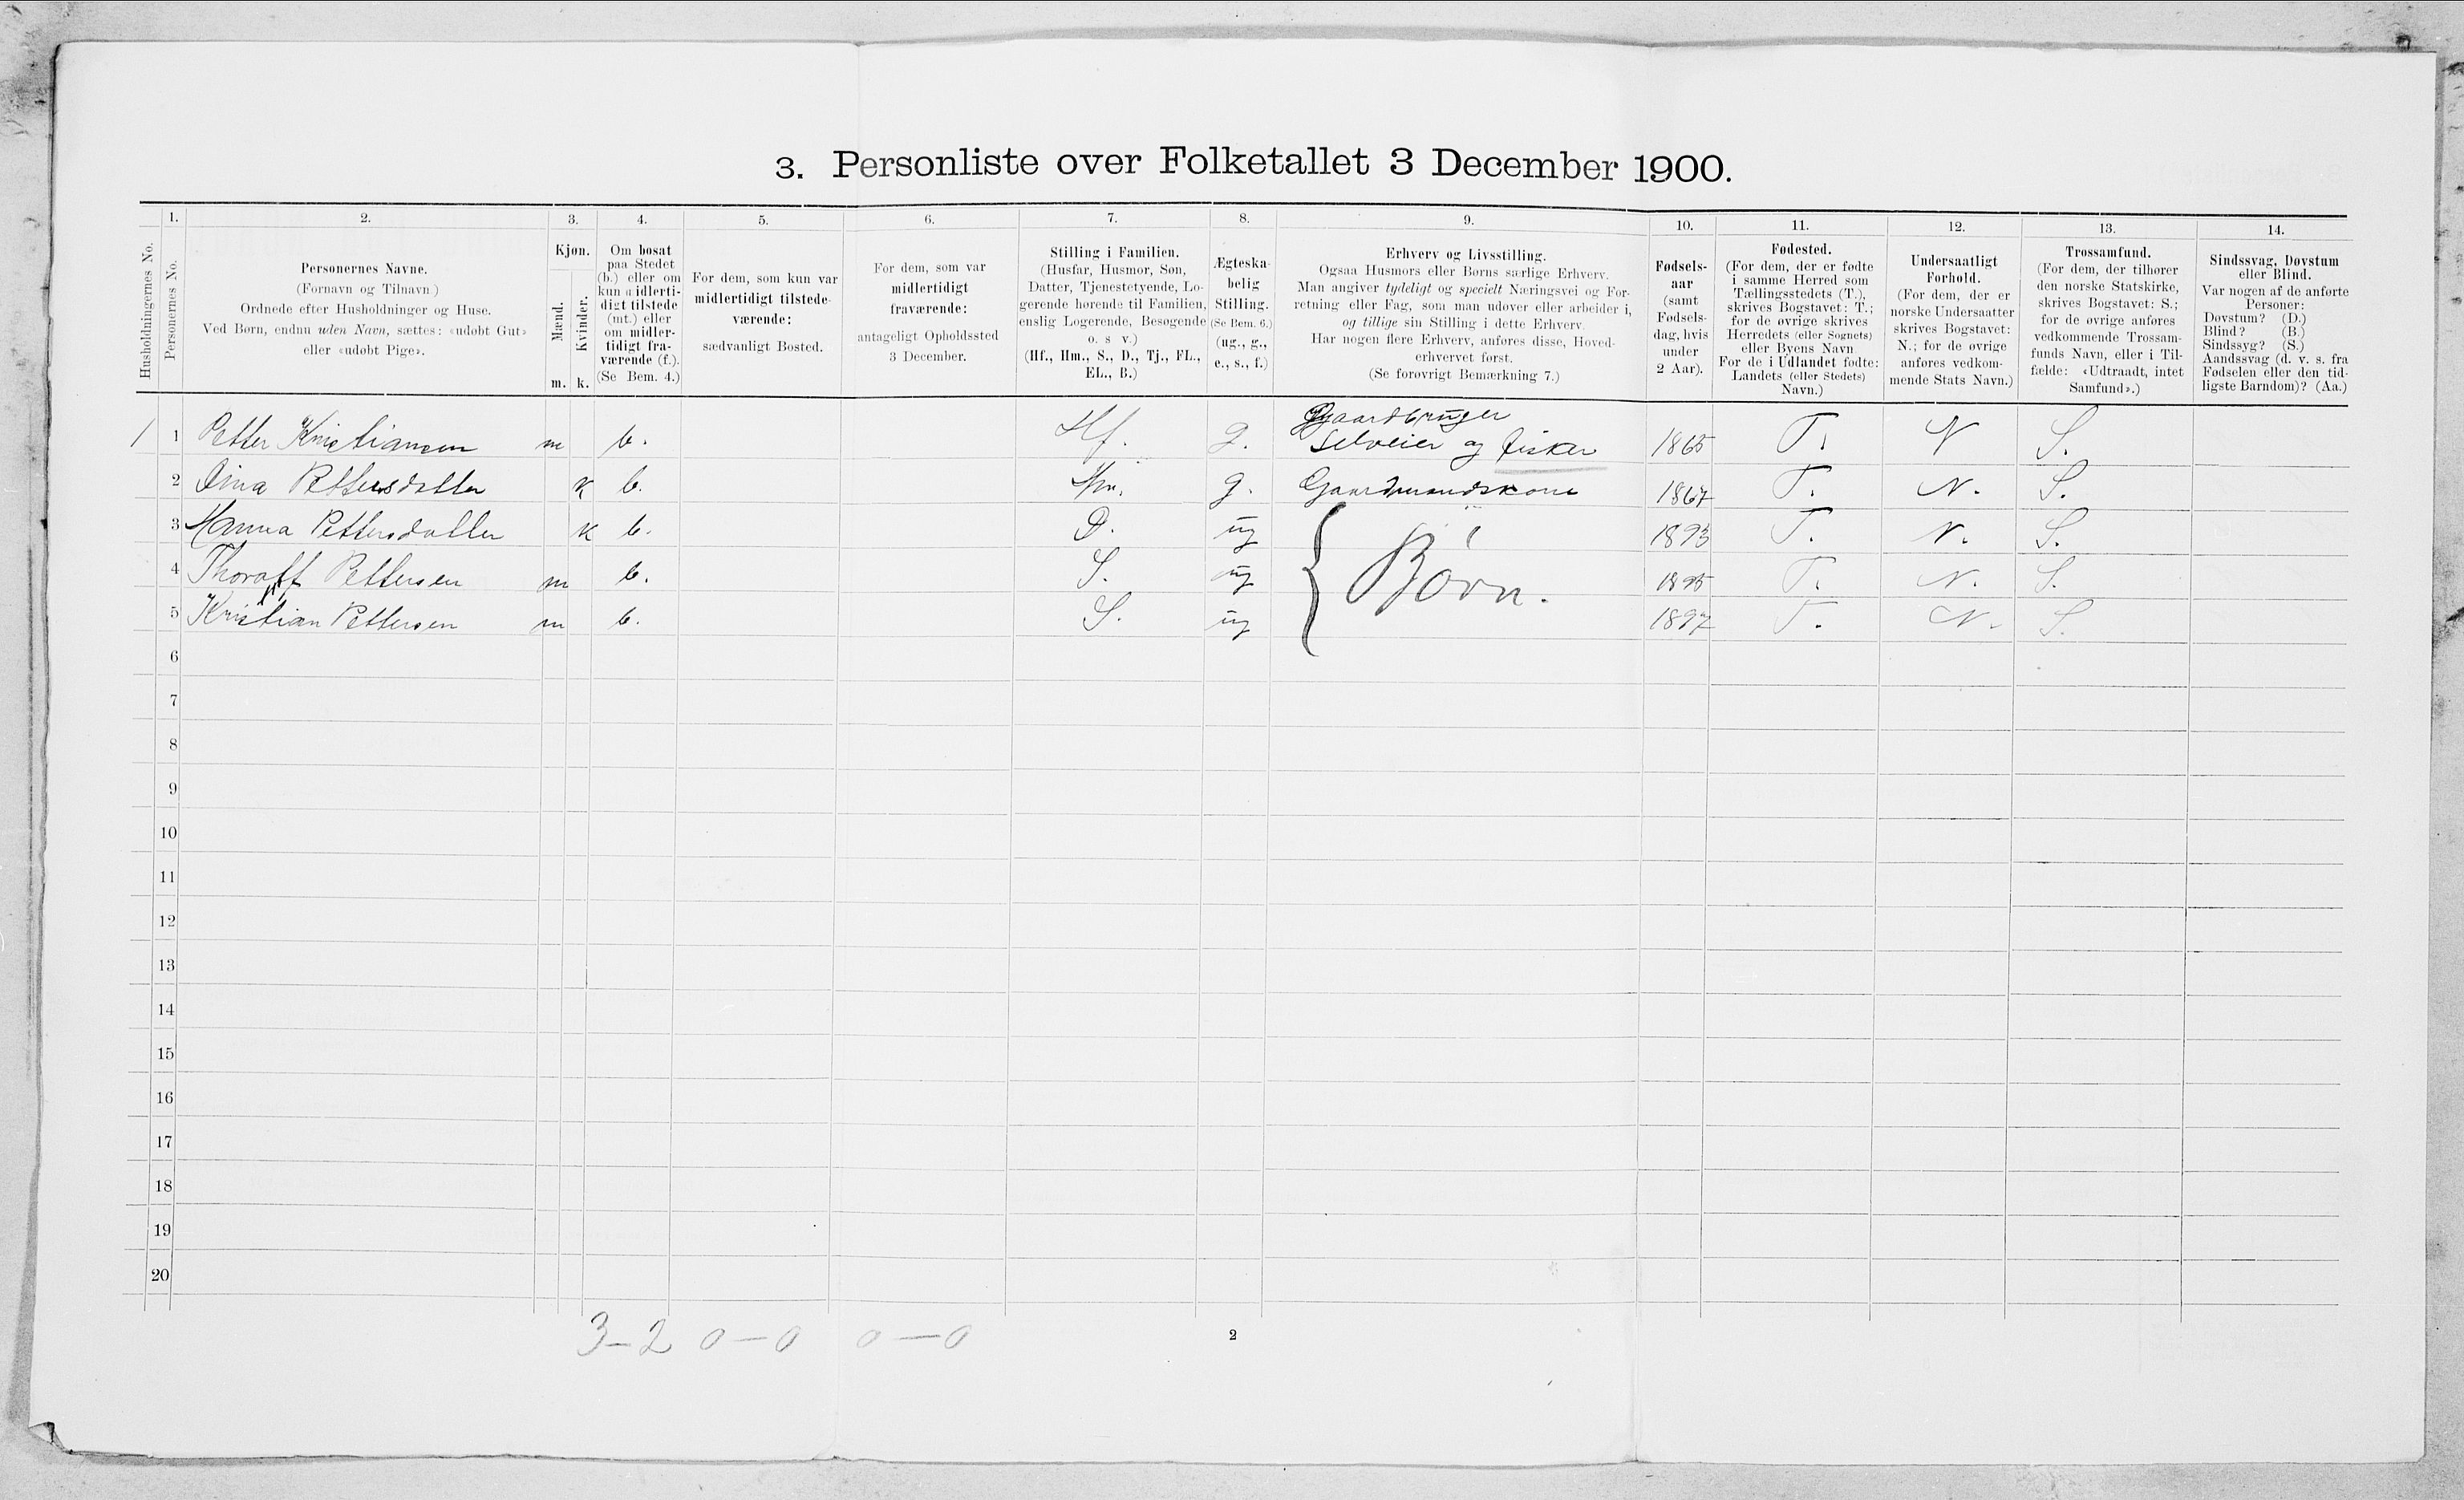 3. Personliste over Folketallet 3 December 1900.
1. 2. 3. 4. 5. 6. 7. 8. 9. 10. 11. 12. 13. 14.
Husholdningernes No.
Personernes No.
Personernes Navne.
(Fornavn og Tilnavn)
Ordnede efter Husholdninger og Huse.
Ved Børn, endnu uden Navn, sættes: «udøbt Gut»
eller «udøbt Pige».
Kjøn.
Mænd.
Kvinder.
m. k.
Om bosat
paa Stedet
(b.) eller om
kun midlerti-
digt tilstede
(mt.) eller
om midler-
tidigt fra-
værende (f.).
(Se Bem. 4.)
For dem, som kun var
midlertidigt tilstede-
værende:
sædvanligt Bosted.
For dem, som var
midlertidigt
fraværende:
antageligt Opholdssted
3 December.
Stilling i Familien.
(Husfar, Husmor, Søn,
Datter, Tjenestetyende, Lo-
gerende hørende til Familien,
enslig Logerende, Besøgende
o. s v.)
(Hf., Hm., S., D., Tj., FL.,
EL., B.)
Ægteska-
belig
Stilling.
(Se Bem. 6.)
(ug., g.,
e., s., f.)
Erhverv og Livsstilling.
Ogsaa Husmors eller Børns særlige Erhverv.
Man angiver tydeligt og specielt Næringsvei og For-
retning eller Fag, som man udøver eller arbeider i,
og tillige sin Stilling i dette Erhverv.
Har nogen flere Erhverv, anføres disse, Hoved-
erhvervet først.
(Se forøvrigt Bemærkning 7.)
Fødsels-
aar
(samt
Fødsels-
dag, hvis
under
2 Aar).
Fødested.
(For dem, der er fødte
i samme Herred som
Tællingsstedets (T.),
skrives Bogstavet: T.;
for de øvrige skrives
Herredets (eller Sognets)
eller Byens Navn
For de i Udlandet fødte:
Landets (eller Stedets)
Navn.)
Undersaatligt
Forhold.
(For dem, der er
norske Undersaatter
skrives Bogstavet:
N.; for de øvrige
anføres vedkom-
mende Stats Navn.)
Trossamfund.
(For dem, der tilhører
den norske Statskirke,
skrives Bogstavet: S.;
for de øvrige anføres
vedkommende Trossam-
funds Navn, eller i Til-
fælde: «Udtraadt, intet
Samfund».)
Sindssvag, Døvstum
eller Blind.
Var nogen af de anførte
Personer:
Døvstum? (D.)
Blind? (B.)
Sindssyg? (S.)
Aandssvag (d. v. s. fra
Fødselen eller den tid-
ligste Barndom)? (Aa.)
1 1 Petter Kristiansen m b. Hf. g. Gaardbruger
selveier og fisker 1865 T. N S.
2 Dina Pettersdatter k b. Hm. g. Gaardmandskone 1867 T. N. S.
3 Hanna Pettersdatter k b. D. ug 1893 T. N. S.
4 Thoralf Pettersen m b. S. ug Børn. 1895 T. N. S.
5 Kristian Pettersen m b. S. ug 1897 T. N. S.
6
7
8
9
10
11
12
13
14
15
16
17
18
19
20
3–2 0–0 0–0
2